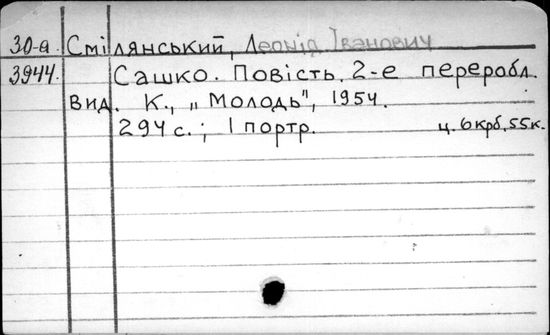 30-а Смілянський, Леонід Іванович
3944. Сашко. Повість. 2-е переробл.
вид. К., „Молодь", 1954.
294 с.; 1 портр. ц. 6 крб. 55 к.